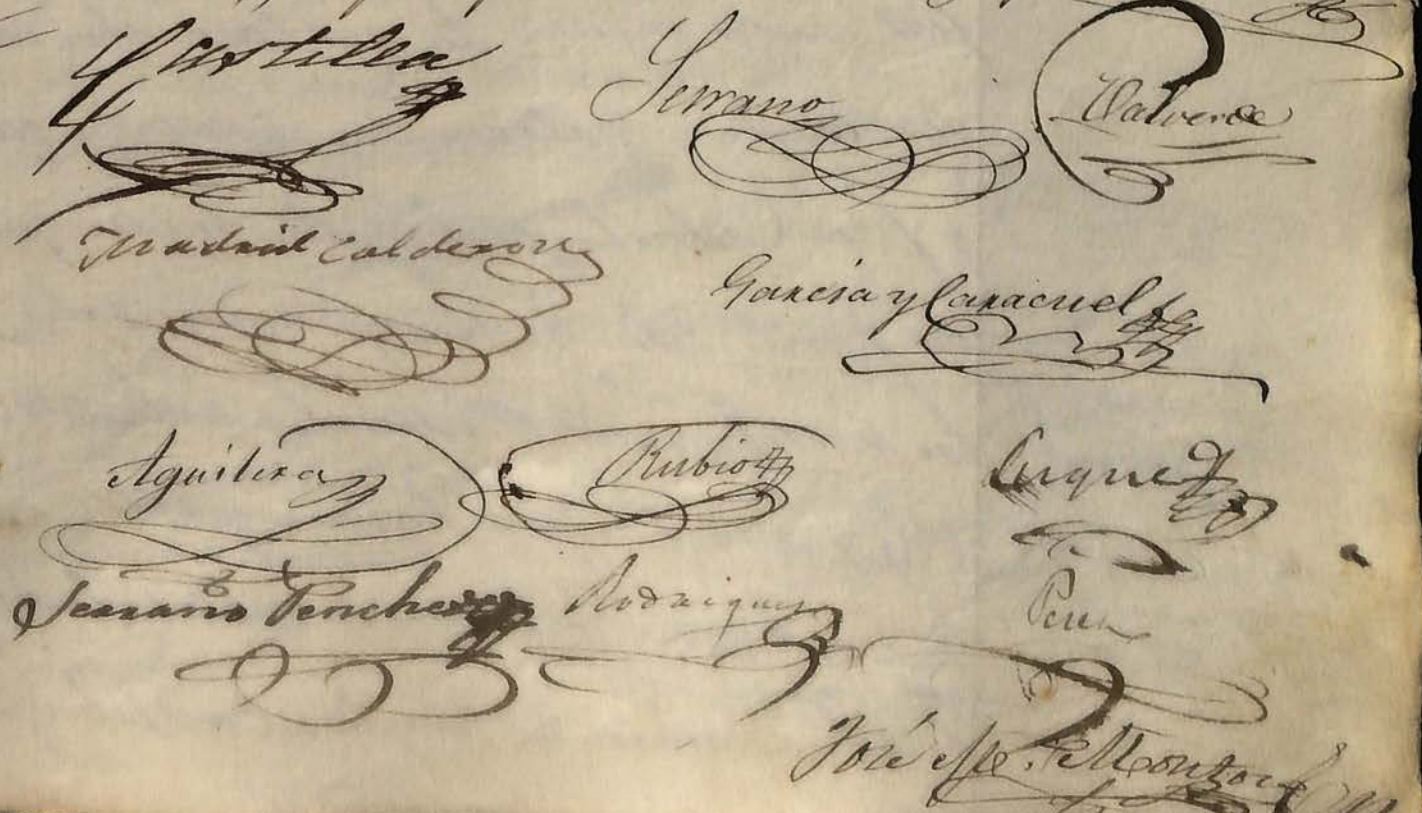 Castilla Serrano Valverde
Madrid Calderon
Garcia y Caracuel
Aguilera Rubio Luque
Serrano Penche Rodriguez Peña
José M. Montor